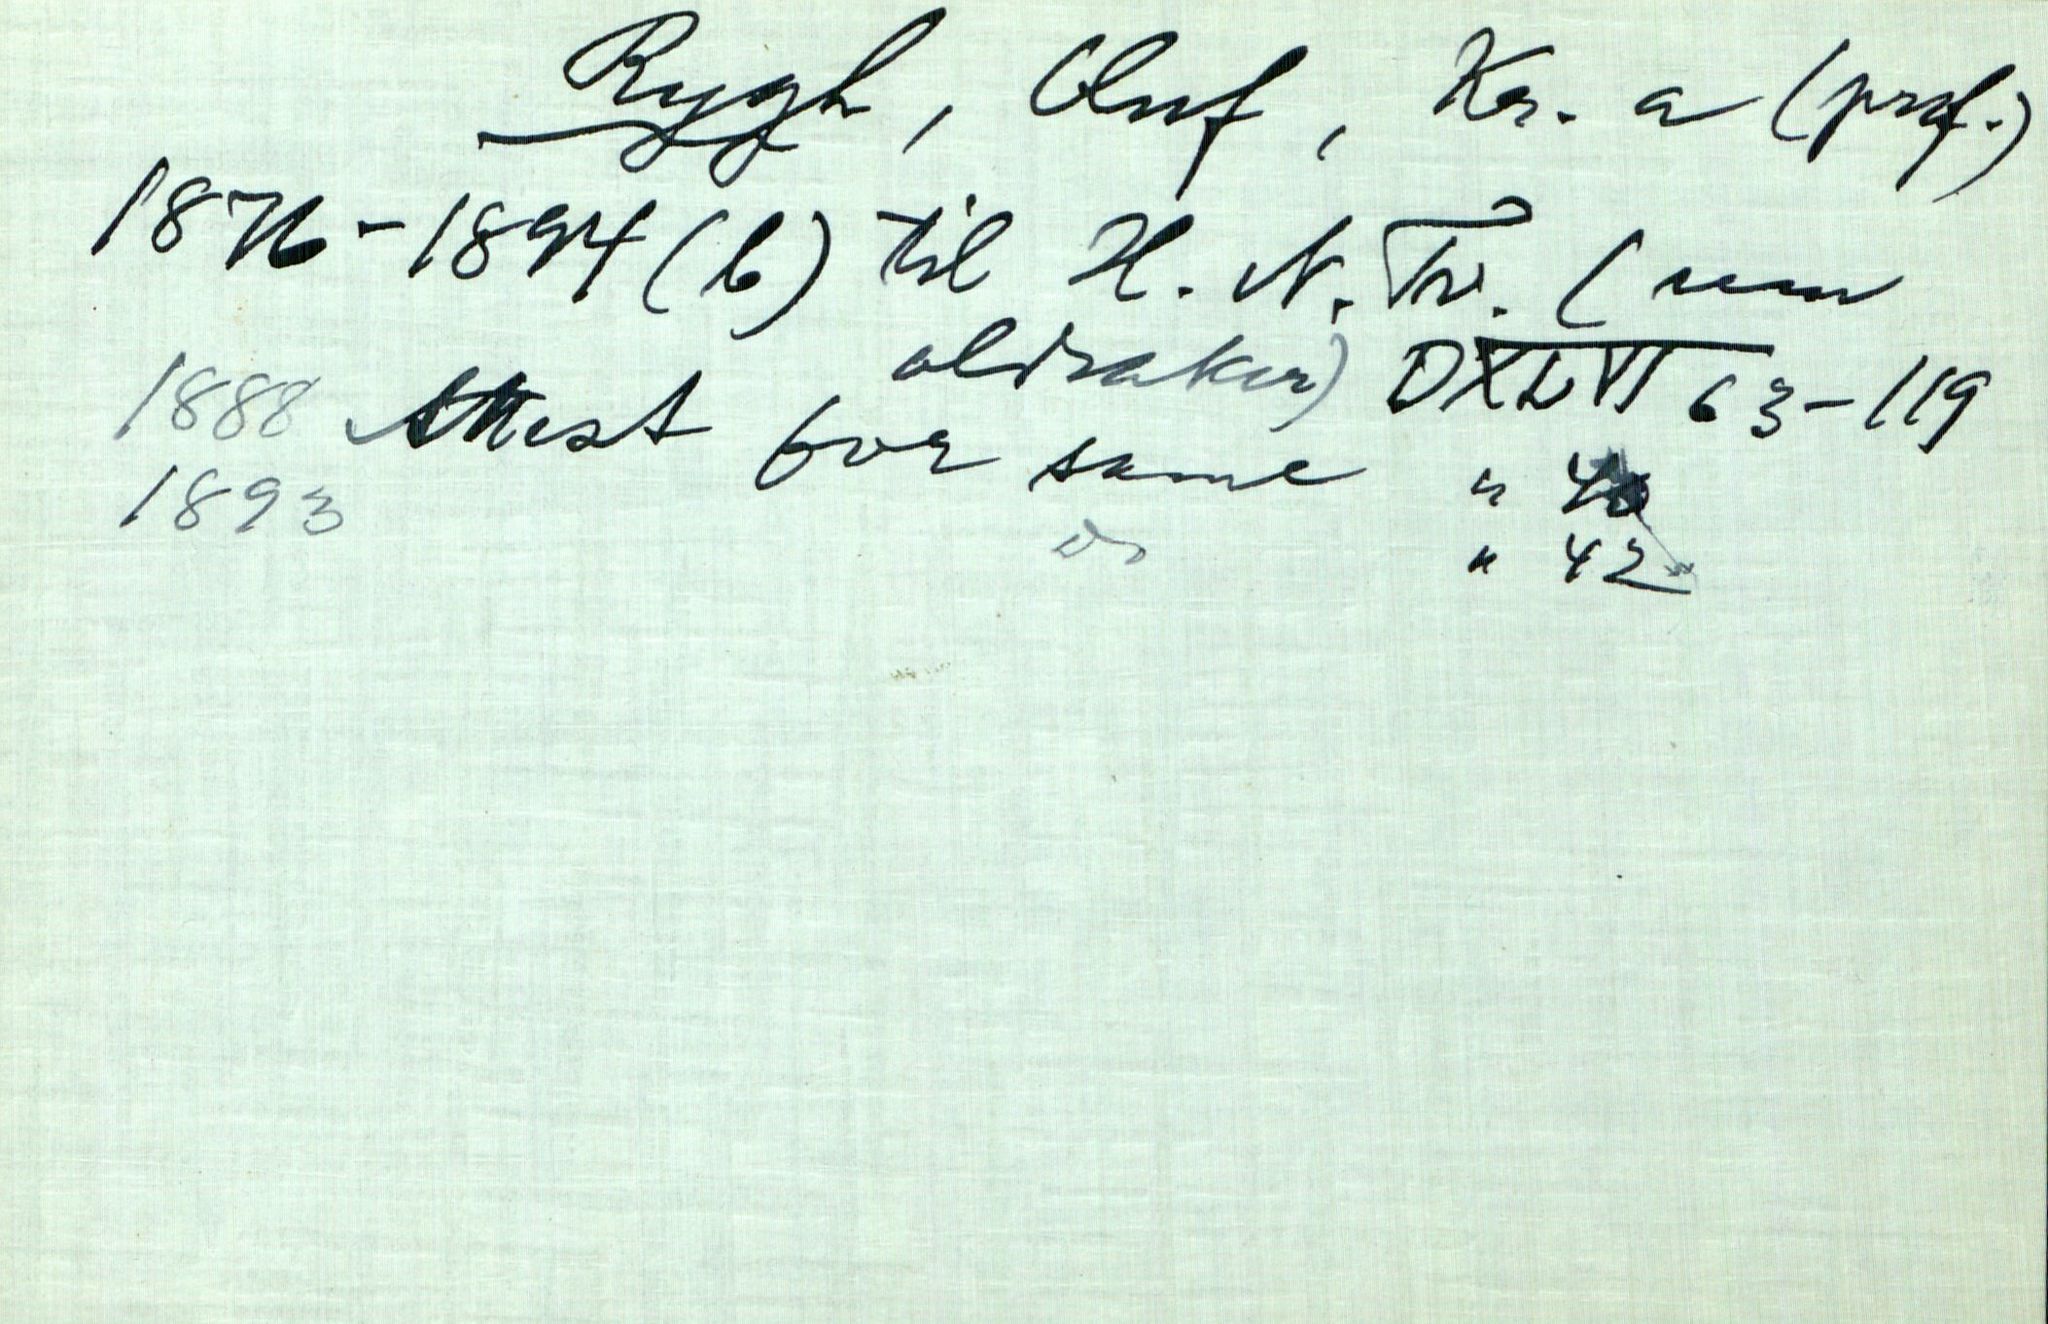 Rygh, Oluf, Kr. a (prof.)
1876-1894 (b) til H. N. Tv. (um
oldsaker) DXLVI 63-119
1888 Attest for same " 40
1893 do " 42